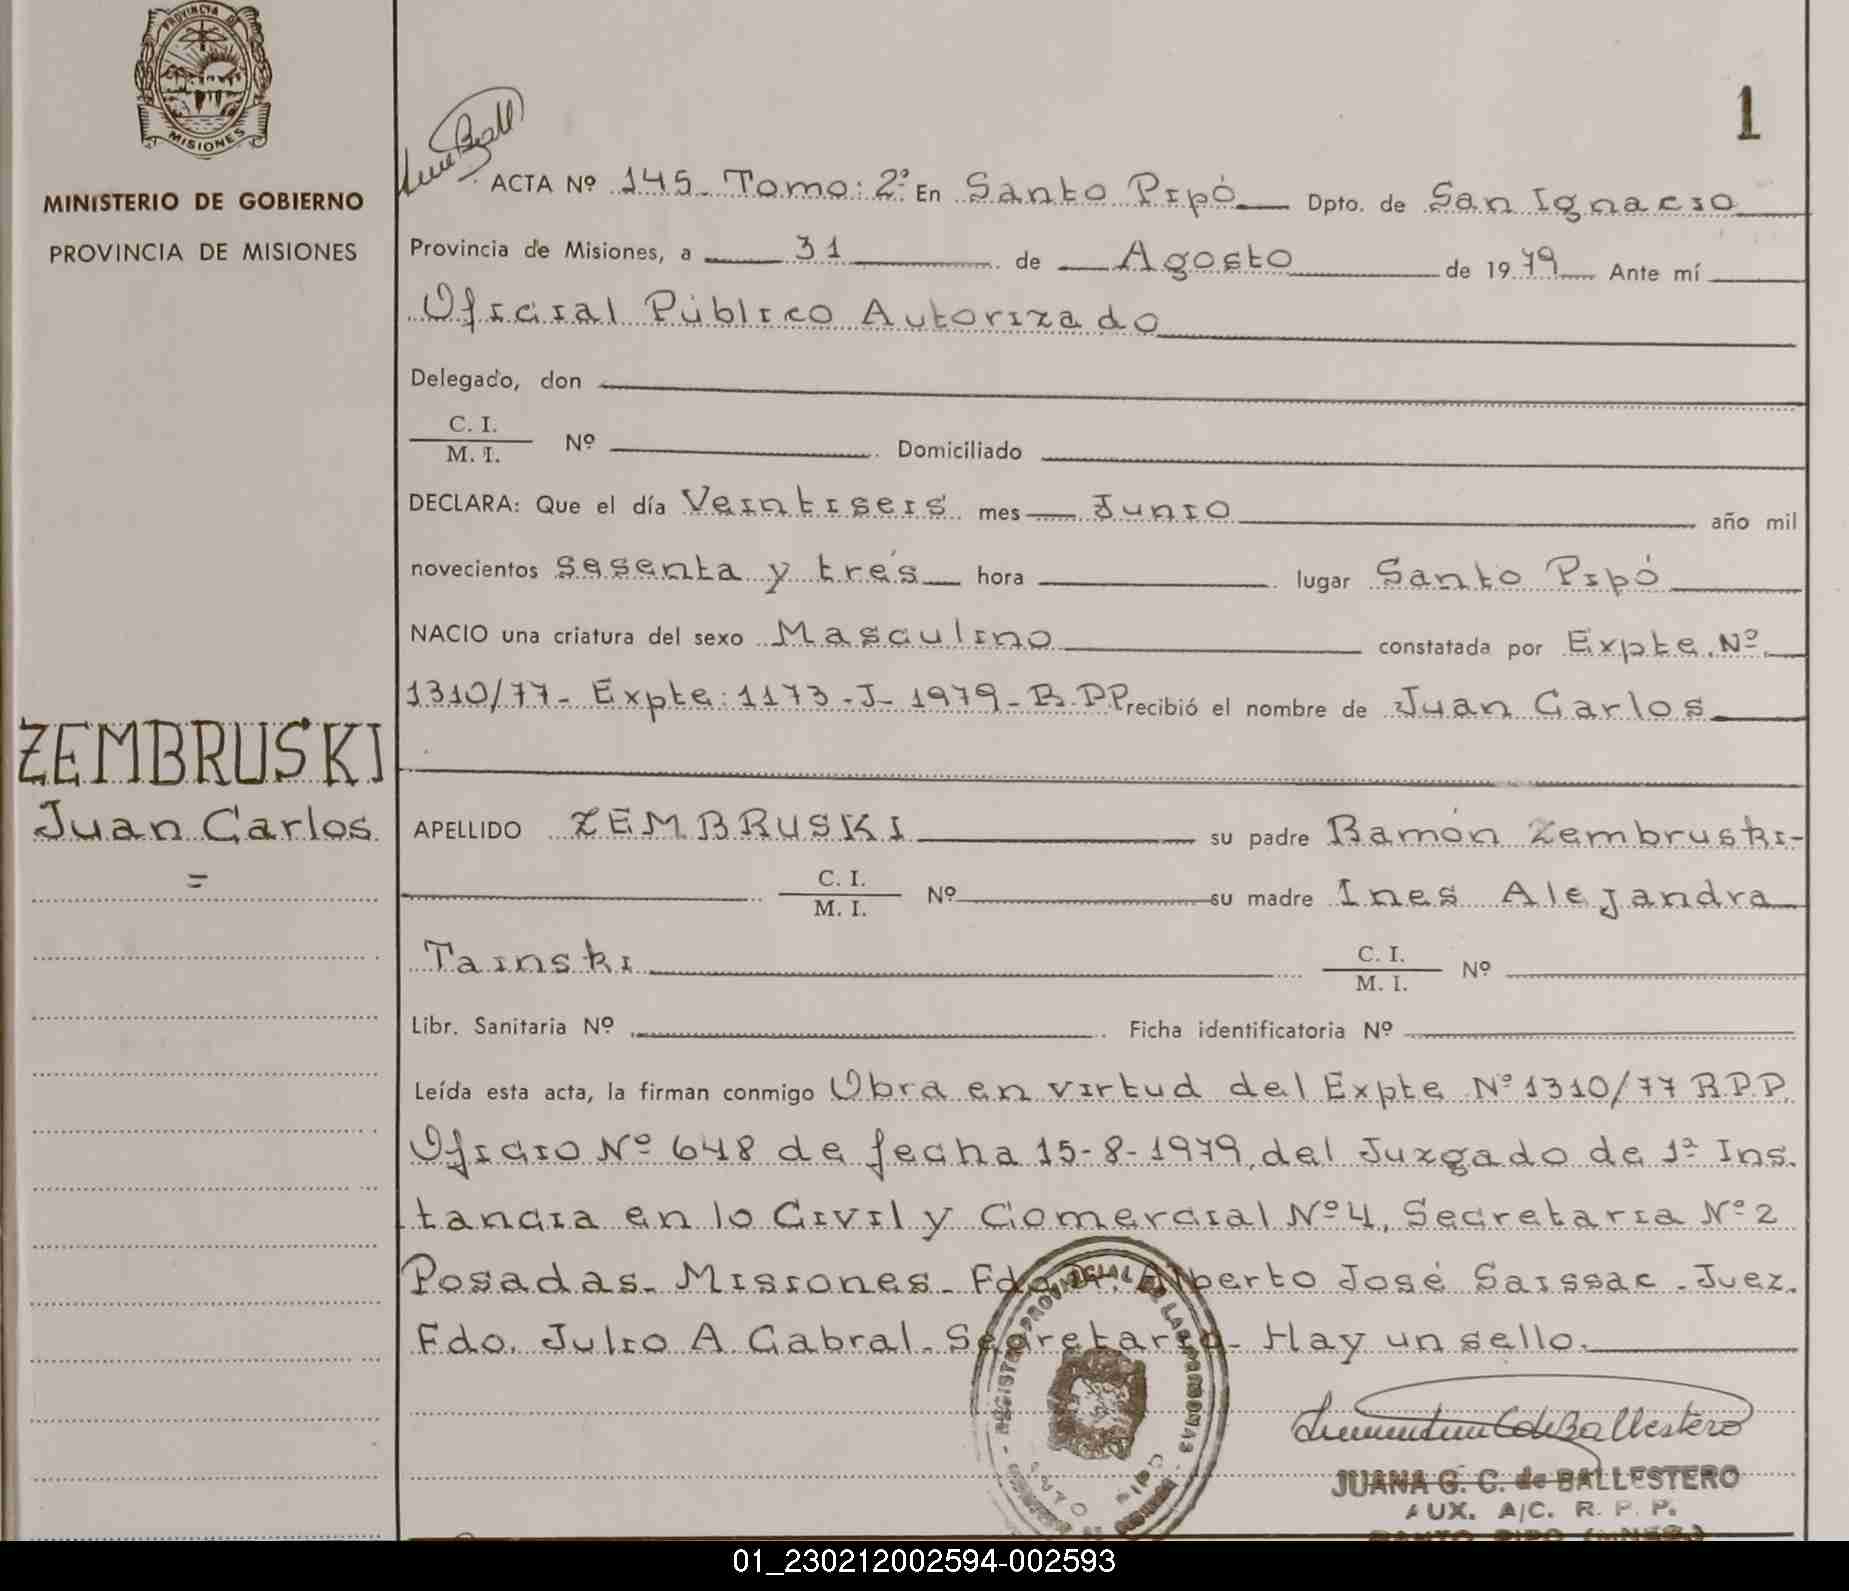 PROVINCIA DE
MISIONES
MINISTERIO DE GOBIERNO
PROVINCIA DE MISIONES
1
ACTA Nº 145 Tomo: 2º En Santo Pipó Dpto. de San Ignacio
Provincia de Misiones, a 31 de Agosto de 1979 Ante mí
Oficial Público Autorizado
Delegado, don
C. I.
M. I. Nº Domiciliado
DECLARA: Que el día Veintiseis mes Junio año mil
novecientos sesenta y trés hora lugar Santo Pipó
NACIO una criatura del sexo Masculino constatada por Expte. Nº
1310/77- Expte: 1173-J-1979-R.P.P. recibió el nombre de Juan Carlos
ZEMBRUSKI
Juan Carlos
=
APELLIDO ZEMBRUSKI su padre Ramón Zembruski-
C. I.
M. I. Nº su madre Ines Alejandra
Tainski C. I.
M. I. Nº
Libr. Sanitaria Nº Ficha identificatoria Nº
Leída esta acta, la firman conmigo Obra en virtud del Expte Nº 1310/77 R.P.P.
Oficio Nº 648 de fecha 15-8-1979, del Juzgado de 1ª Ins.
tancia en lo Civil y Comercial Nº 4, Secretaria Nº 2
Posadas. Misiones. Fdo. Dr. Alberto José Saissac. Juez.
Fdo. Julio A Cabral. Secretario- Hay un sello.
REGISTRO PROVINCIAL DE LAS PERSONAS
de Ballestero
JUANA G. C. de BALLESTERO
AUX. A/C. R. P. P.
SANTO PIPO (MNES.)
01_230212002594-002593